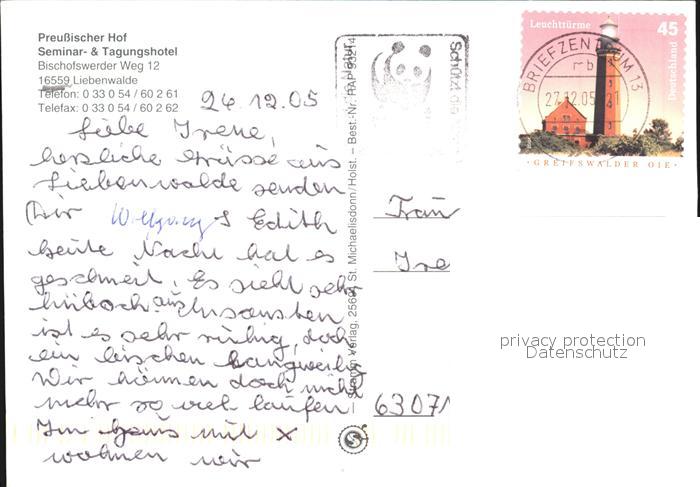 Preußischer Hof
Seminar- & Tagungshotel
Bischofswerder Weg 12
16559 Liebenwalde
Telefon: 0 33 0 54 / 60 2 61
Telefax: 0 33 0 54 / 60 2 62
26.12.05
Liebe Irene,
herzliche Grüsse aus
Liebenwalde senden
Dir Wolfgang & Edith
heute Nacht hat es
geschneit. Es sieht sehr
hübsch aus. Ansonsten
ist es sehr ruhig, doch
ein bischen langweilig
Wir können doch nicht
mehr so viel laufen
Im Haus mit x
wohnen wir
Stramm Verlag, 25693 St. Michaelisdonn/Holst. – Best.-Nr. RAP 93214
Schützt die
Natur
Leuchttürme
45
Deutschland
GREIFSWALDER OIE
BRIEFZENTRUM 13
rb
27.12.05-21
Frau
Ire
63071
privacy protection
Datenschutz